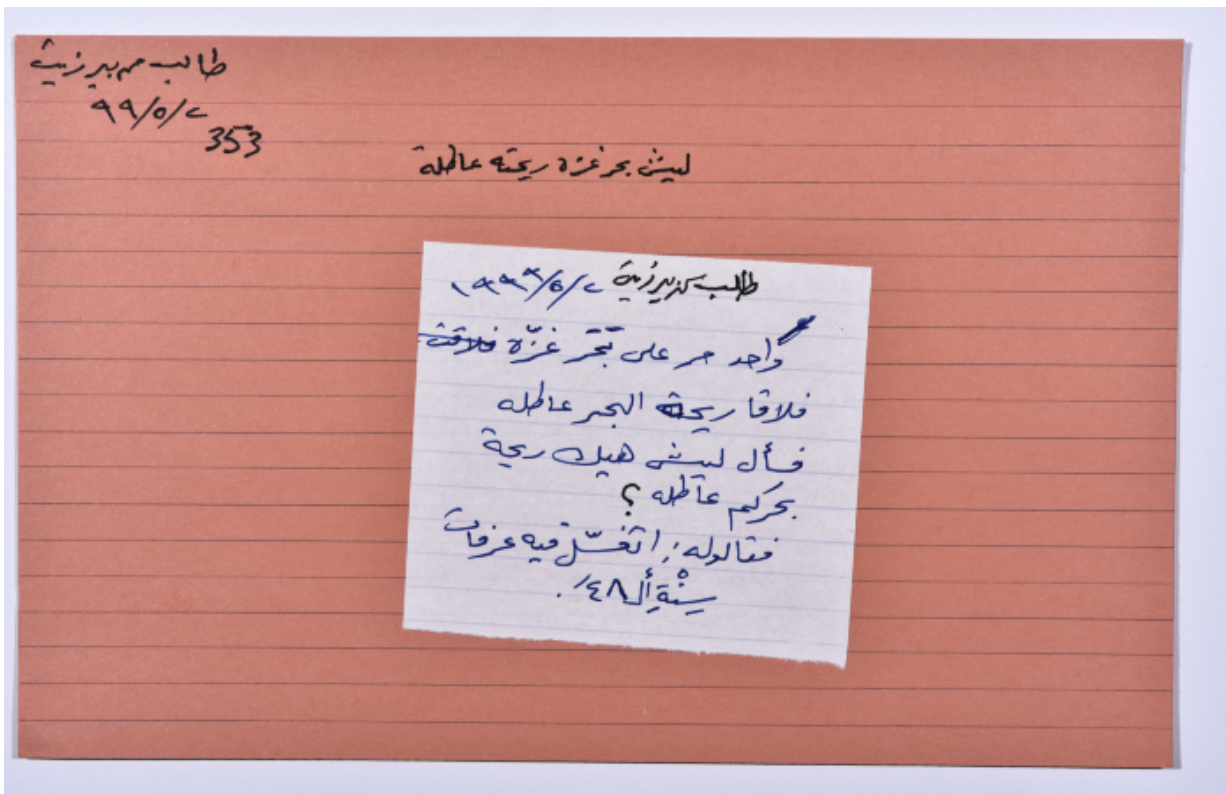 طالب من بير زيت
٩٩/٥/٢
353
ليش بحر غزة ريحته عاطلة
طالب من بير زيت ١٩٩٩/٥/٢
واحد مر على بَحَر غزّة فلاقى
فلاقا ريحة البحر عاطله
فسأل ليش هيك ريحة
بحركم عاطله؟
فقالوله: اتغسّل فيه عرفات
سِنْةِ أل ٤٨.